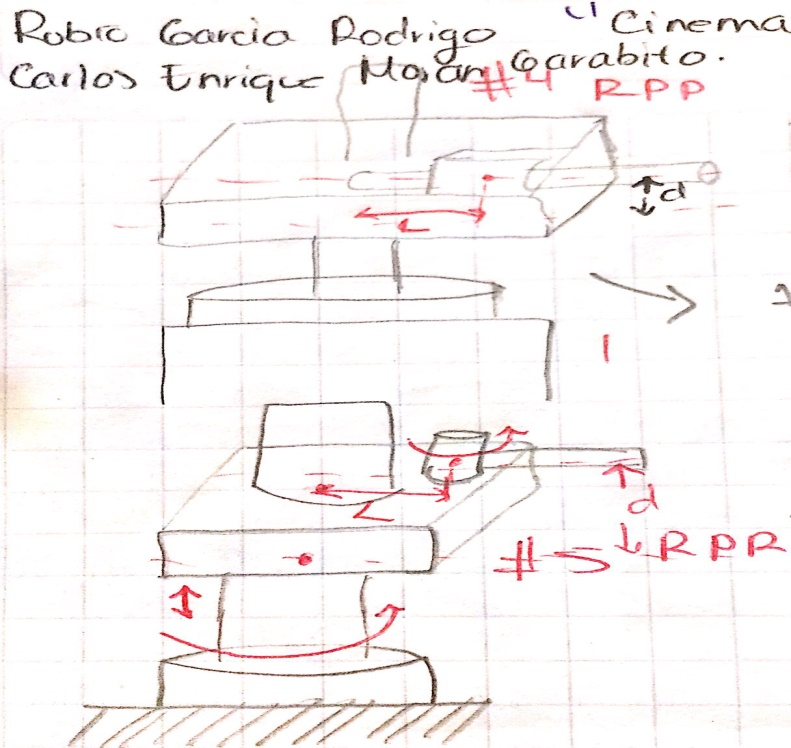 Rubio Garcia Rodrigo Cinema
Carlos Enrique Garabito.
#4 RPP
d
L
1
L
d
#5 RPR